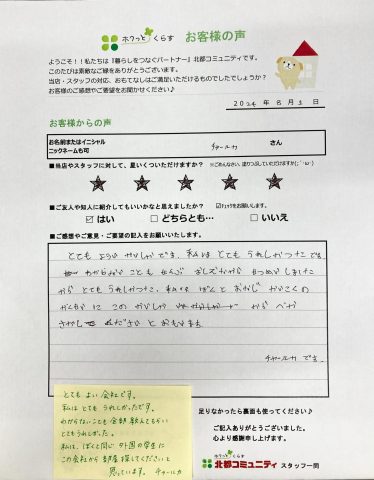 ホクっとくらす お客様の声
ようこそ！！私たちは『暮らしをつなぐパートナー』北都コミュニティです。
このたびは素敵なご縁をありがとうございます。
当店・スタッフの対応、おもてなしはご満足いただけるものでしたでしょうか？
お客様のご感想やご要望をお聞かせください♪
2024年8月3日
お客様からの声
お名前またはイニシャル
ニックネームも可
チャールカ さん
■当店やスタッフに対して、星いくついただけますか？
★ ★ ★ ★ ★
■ご友人や知人に紹介してもいいかなと思えましたか？ ☑チェックをお願いします。
☑はい □どちらとも… □いいえ
■ご感想やご意見・ご要望の記入をお願いします。
とても よい かいしゃ です 私は とても うれしかった です
わからない ことも ぜんぶ
から とても うれしかった、私は ぼくと おなじ がいこくの
この かいしゃ から へや
さがして ください と おもいます
チャールカ です。
とても よい 会社です。
私は とても うれしかったです。
わからないことも全部
とてもうれしかった。
私は、ぼくと同じ 外国の学生に
この会社から 部屋 探してくださいと
思っています。 チャールカ
足りなかったら裏面も使ってください♪
ご記入ありがとうございました。
心より感謝申し上げます。
ホクっとくらす
北都コミュニティ スタッフ一同